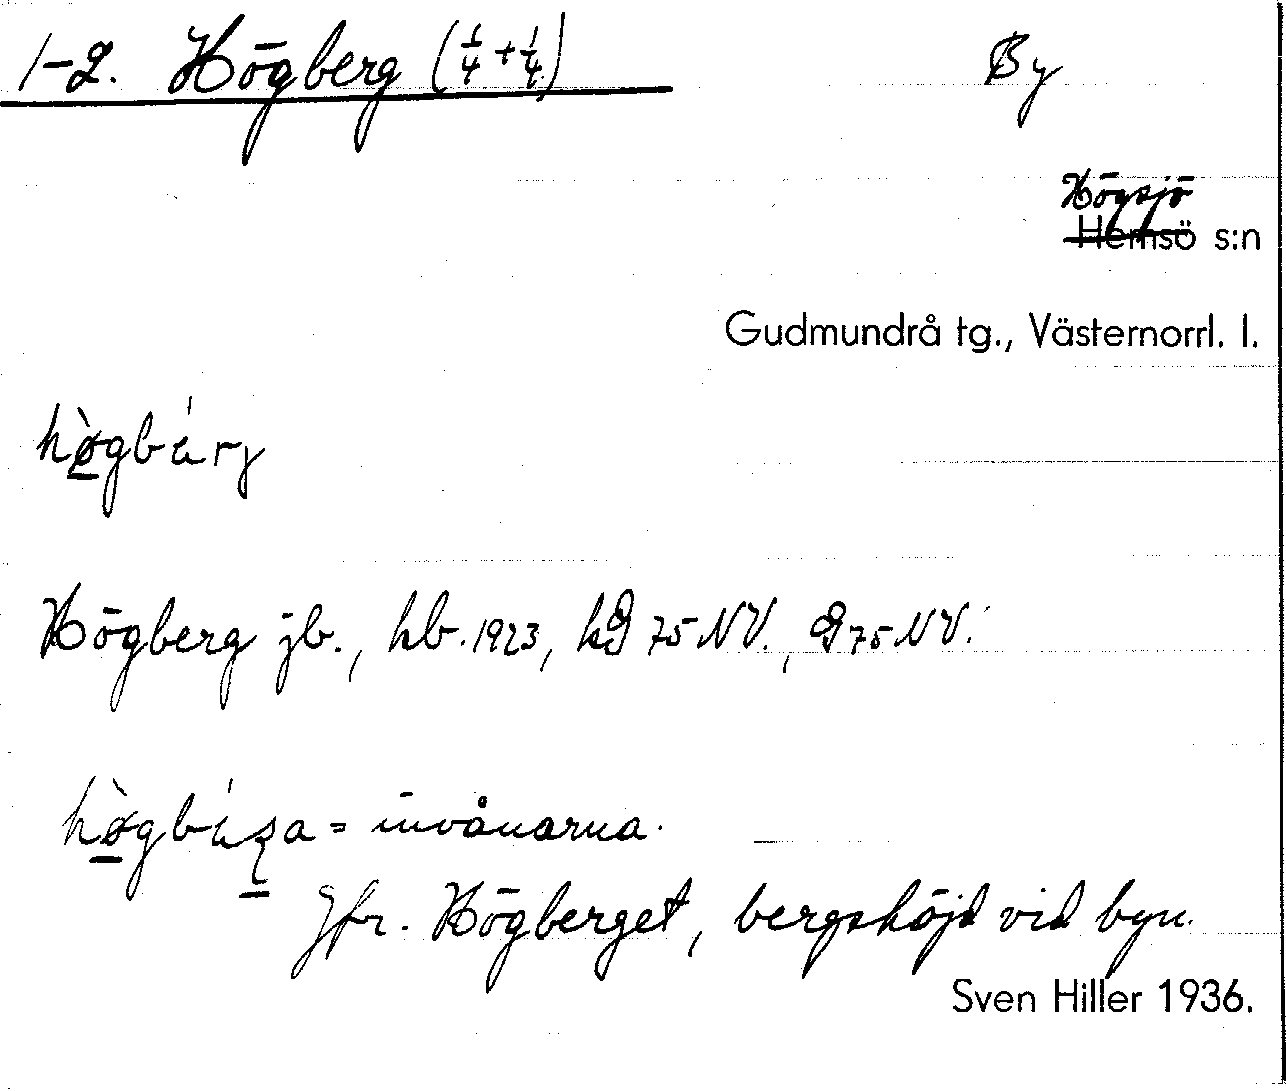 1-2. Högberg (1/4 + 1/4) By
Högsjö
Hemsö s:n
Gudmundrå tg., Västernorrl. l.
Högberg jb., hb. 1923, kD 75 NV., D 75 NV.
= invånarna.
Jfr. Högberget, bergshöjd vid byn.
Sven Hiller 1936.